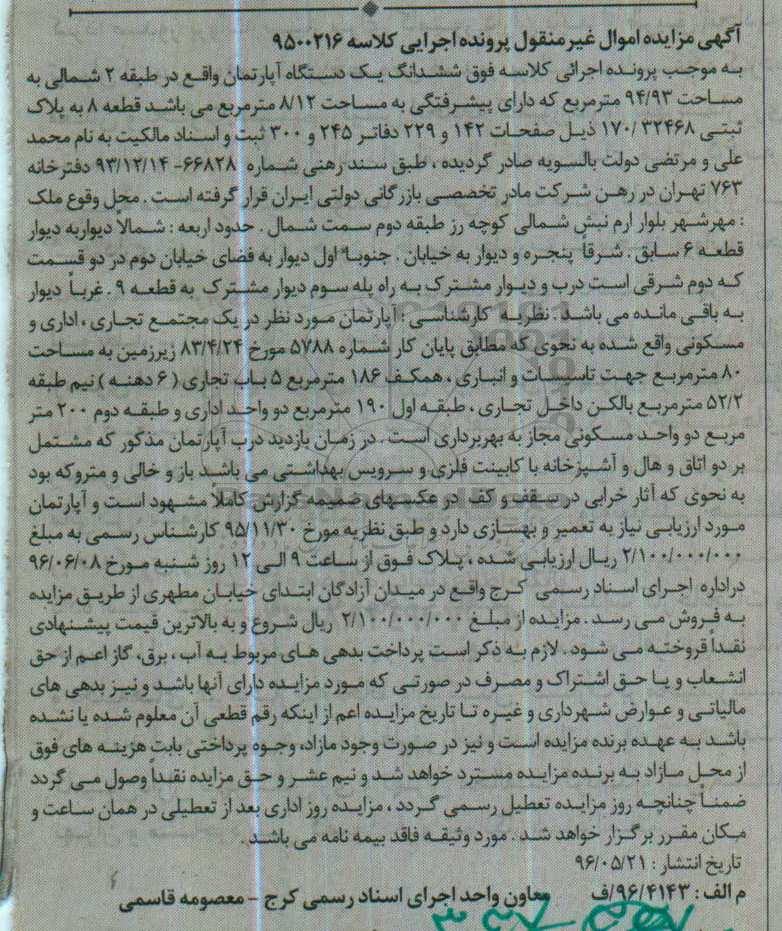 آگهی مزایده اموال غیر منقول پرونده اجرایی کلاسه ۹۵۰۰۲۱۶
به موجب پرونده اجرائی کلاسه فوق ششدانگ یک دستگاه آپارتمان واقع در طبقه ۲ شمالی به
مساحت ۹۴/۹۳ مترمربع که دارای پیشرفتگی به مساحت ۸/۱۲ مترمربع می باشد قطعه ۸ به پلاک
ثبتی ۱۷۰/۳۲۴۶۸ ذیل صفحات ۱۴۲ و ۲۲۹ دفاتر ۲۴۵ و ۳۰۰ ثبت و اسناد مالکیت به نام محمد
علی و مرتضی دولت بالسویه صادر گردیده ، طبق سند رهنی شماره ۶۶۸۲۸- ۹۳/۱۲/۱۴ دفترخانه
۷۶۳ تهران در رهن شرکت مادر تخصصی بازرگانی دولتی ایران قرار گرفته است . محل وقوع ملک
: مهرشهر بلوار ارم نبش شمالی کوچه رز طبقه دوم سمت شمال . حدود اربعه : شمالاً دیواربه دیوار
قطعه ۶ سابق . شرقاً پنجره و دیوار به خیابان . جنوباً اول دیوار به فضای خیابان دوم در دو قسمت
که دوم شرقی است درب و دیوار مشترک به راه پله سوم دیوار مشترک به قطعه ۹ . غرباً دیوار
به باقی مانده می باشد . نظریه کارشناسی : آپارتمان مورد نظر در یک مجتمع تجاری ، اداری و
مسکونی واقع شده به نحوی که مطابق پایان کار شماره ۵۷۸۸ مورخ ۸۳/۴/۲۴ زیرزمین به مساحت
۸۰ مترمربع جهت تاسیسات و انباری ، همکف ۱۸۶ مترمربع ۵ باب تجاری ( ۶ دهنه ) نیم طبقه
۵۲/۲ مترمربع بالکن داخل تجاری ، طبقه اول ۱۹۰ مترمربع دو واحد اداری و طبقه دوم ۲۰۰ متر
مربع دو واحد مسکونی مجاز به بهربرداری است . در زمان بازدید درب آپارتمان مذکور که مشتمل
بر دو اتاق و هال و آشپزخانه با کابینت فلزی و سرویس بهداشتی می باشد باز و خالی و متروکه بود
به نحوی که آثار خرابی در سقف و کف در عکسهای ضمیمه گزارش کاملاً مشهود است و آپارتمان
مورد ارزیابی نیاز به تعمیر و بهسازی دارد و طبق نظریه مورخ ۹۵/۱۱/۳۰ کارشناس رسمی به مبلغ
۲/۱۰۰/۰۰۰/۰۰۰ ریال ارزیابی شده ، پلاک فوق از ساعت ۹ الی ۱۲ روز شنبه مورخ ۹۶/۰۶/۰۸
دراداره اجرای اسناد رسمی کرج واقع در میدان آزادگان ابتدای خیابان مطهری از طریق مزایده
به فروش می رسد . مزایده از مبلغ ۲/۱۰۰/۰۰۰/۰۰۰ ریال شروع و به بالاترین قیمت پیشنهادی
نقداً فروخته می شود . لازم به ذکر است پرداخت بدهی های مربوط به آب ، برق، گاز اعم از حق
انشعاب و یا حق اشتراک و مصرف در صورتی که مورد مزایده دارای آنها باشد و نیز بدهی های
مالیاتی و عوارض شهرداری و غیره تا تاریخ مزایده اعم از اینکه رقم قطعی آن معلوم شده یا نشده
باشد به عهده برنده مزایده است و نیز در صورت وجود مازاد، وجوه پرداختی بابت هزینه های فوق
از محل مازاد به برنده مزایده مسترد خواهد شد و نیم عشر و حق مزایده نقداً وصول می گردد
ضمناً چنانچه روز مزایده تعطیل رسمی گردد ، مزایده روز اداری بعد از تعطیلی در همان ساعت و
مکان مقرر برگزار خواهد شد . مورد وثیقه فاقد بیمه نامه می باشد .
تاریخ انتشار : ۹۶/۰۵/۲۱
م الف : ۹۶/۴۱۴۳/ف معاون واحد اجرای اسناد رسمی کرج - معصومه قاسمی